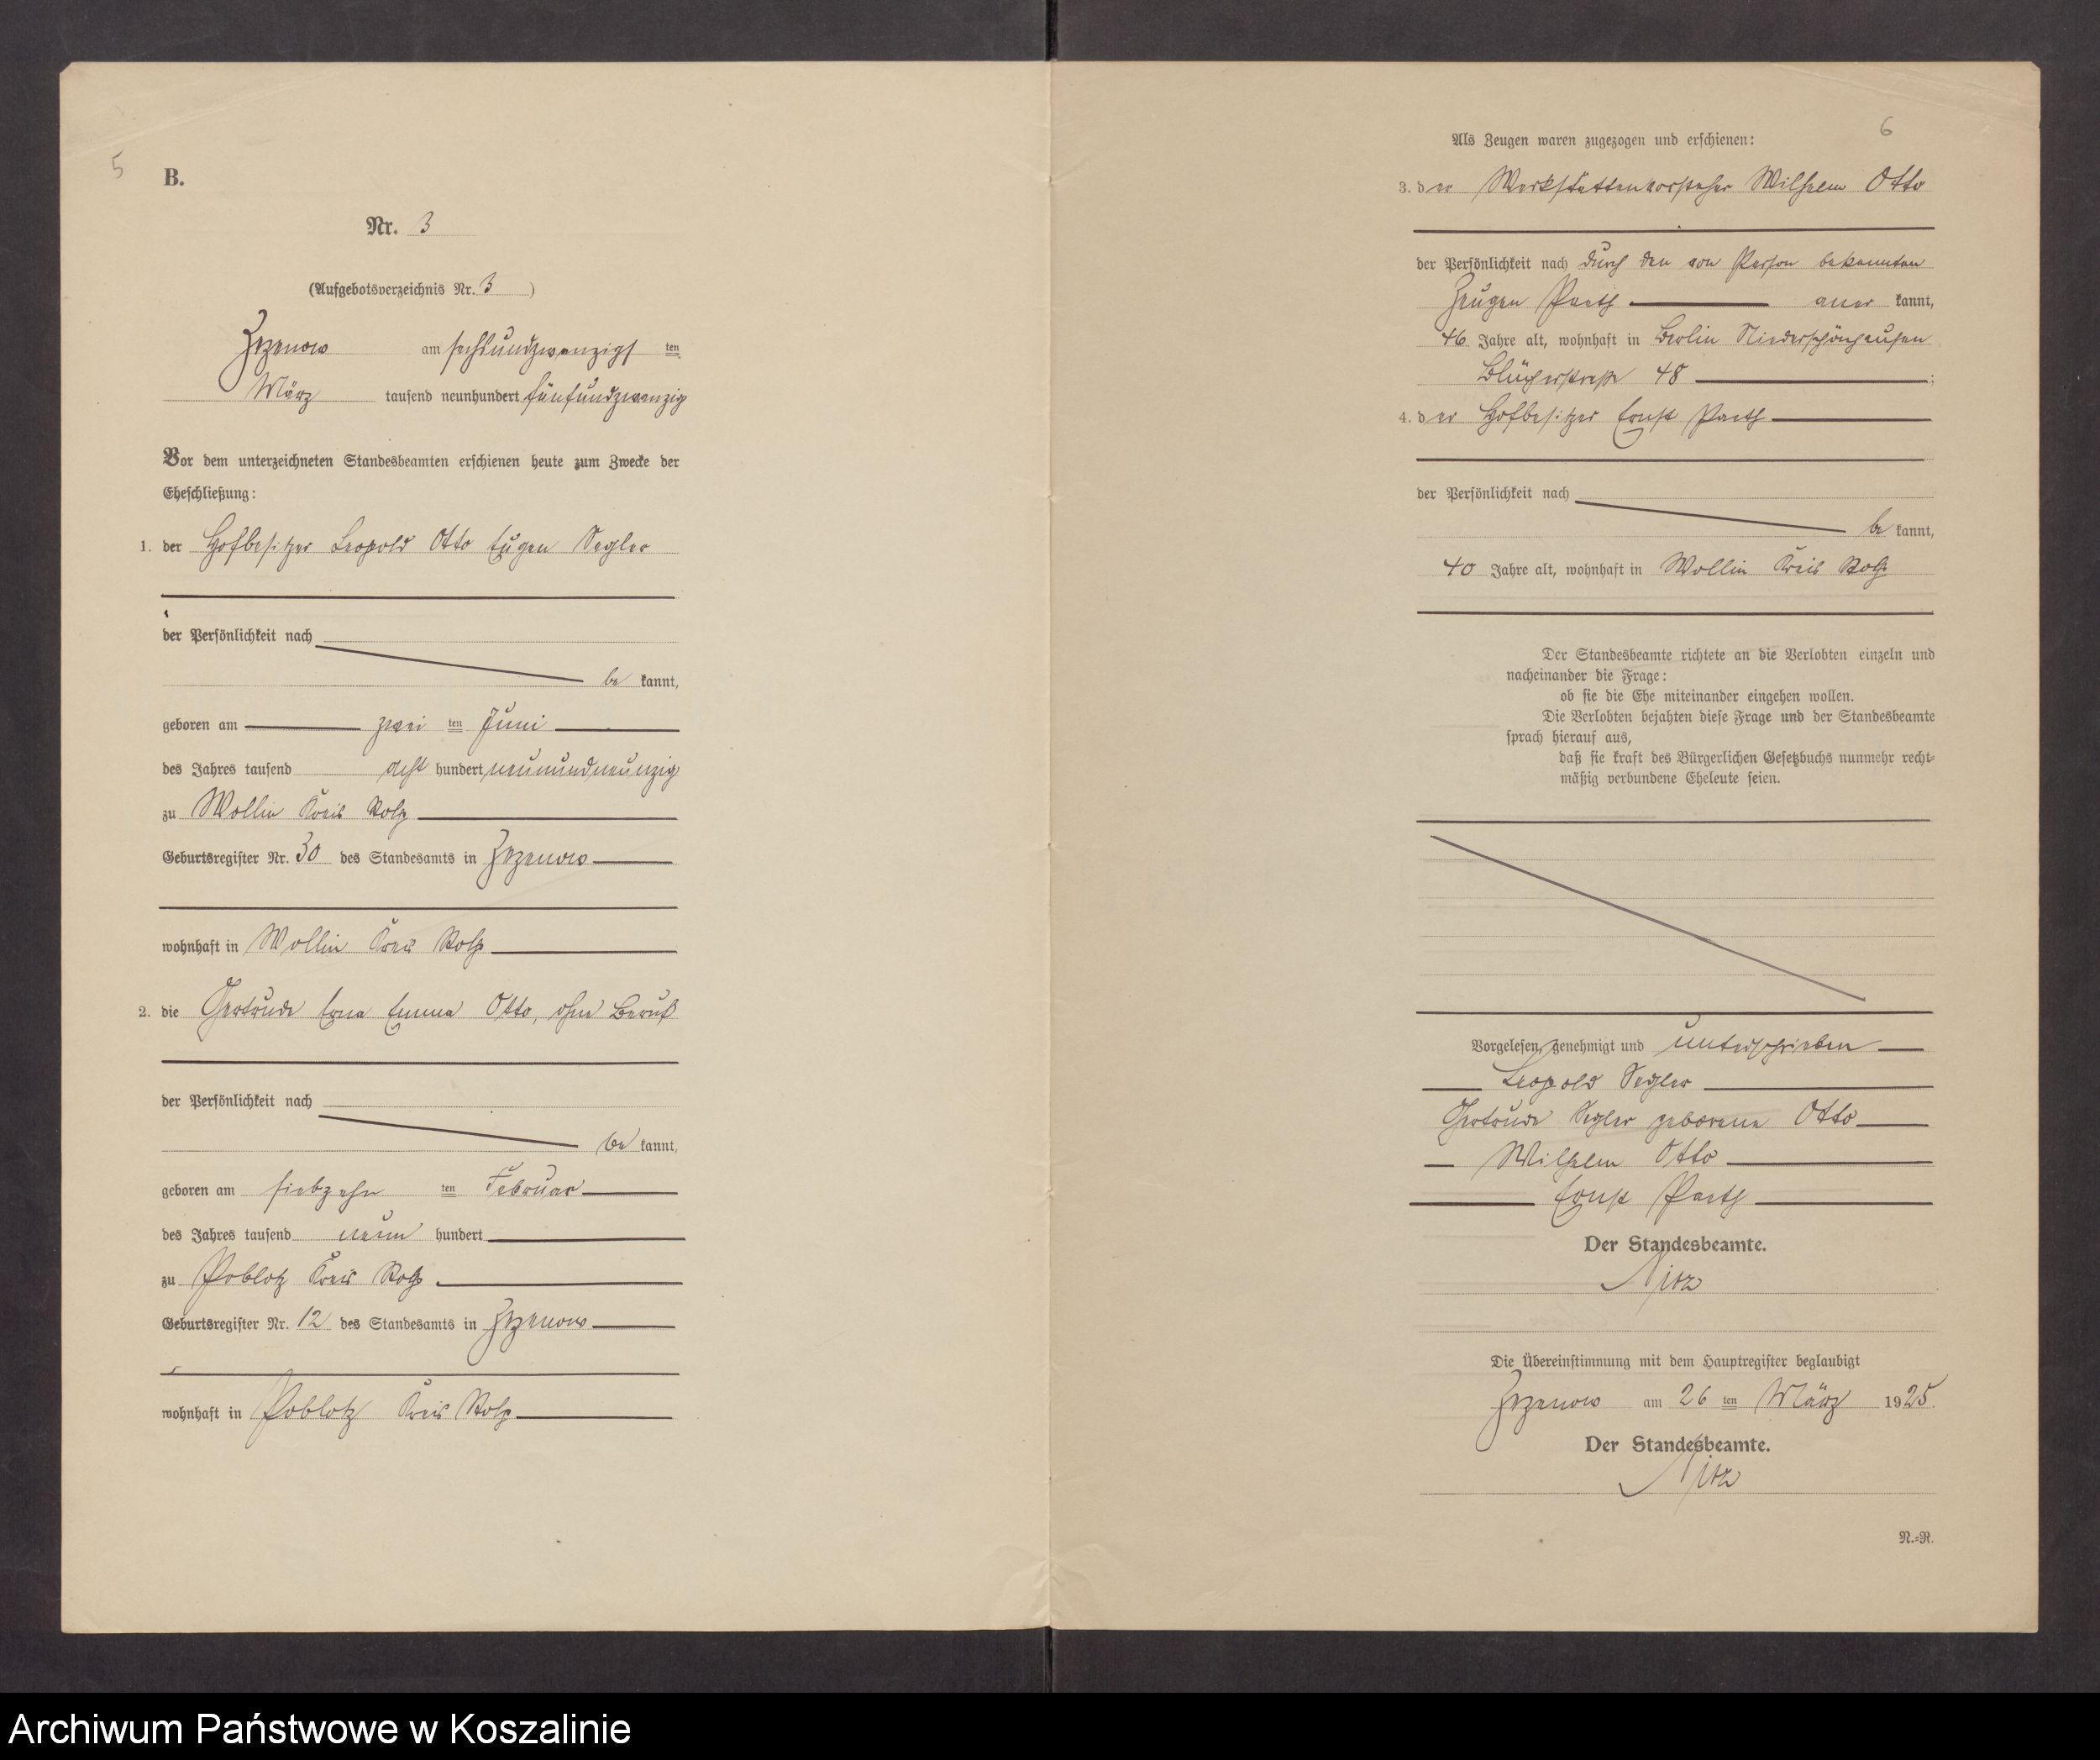 5
B.
Nr. 3
(Aufgebotsverzeichnis Nr. 3)
Zezenow am sechsundzwanzigs ten
März tausend neunhundert fünfundzwanzig
Vor dem unterzeichneten Standesbeamten erschienen heute zum Zwecke der
Eheschließung:
1. der Hofbesitzer Leopold Otto Eugen Segler
der Persönlichkeit nach
be kannt,
geboren am zwei ten Juni
des Jahres tausend acht hundert neunundneunzig
zu Wollin Kreis Stolp
Geburtsregister Nr. 30 des Standesamts in Zezenow
wohnhaft in Wollin Kreis Stolp
2. die Gertrude Erna Emma Otto, ohne Beruf
der Persönlichkeit nach
be kannt,
geboren am siebzehn ten Februar
des Jahres tausend neun hundert
zu Poblotz Kreis Stolp
Geburtsregister Nr. 12 des Standesamts in Zezenow
wohnhaft in Poblotz Kreis Stolp
6
Als Zeugen waren zugezogen und erschienen:
3. der Werkstattenvorsteher Wilhelm Otto
der Persönlichkeit nach durch den von Person bekannten
Zeugen Paeth aner kannt,
46 Jahre alt, wohnhaft in Berlin Niederschönhausen
Blücherstraße 48;
4. der Hofbesitzer Ernst Paeth
der Persönlichkeit nach
be kannt,
40 Jahre alt, wohnhaft in Wollin Kreis Stolp
Der Standesbeamte richtete an die Verlobten einzeln und
nacheinander die Frage:
ob sie die Ehe miteinander eingehen wollen.
Die Verlobten bejahten diese Frage und der Standesbeamte
sprach hierauf aus,
daß sie kraft des Bürgerlichen Gesetzbuchs nunmehr recht-
mäßig verbundene Eheleute seien.
Vorgelesen, genehmigt und unterschrieben
Leopold Segler
Gertrude Segler geborene Otto
Wilhelm Otto
Ernst Paeth
Der Standesbeamte.
Die Übereinstimmung mit dem Hauptregister beglaubigt
Zezenow am 26 ten März 1925.
Der Standesbeamte.
N.-R.
Archiwum Państwowe w Koszalinie